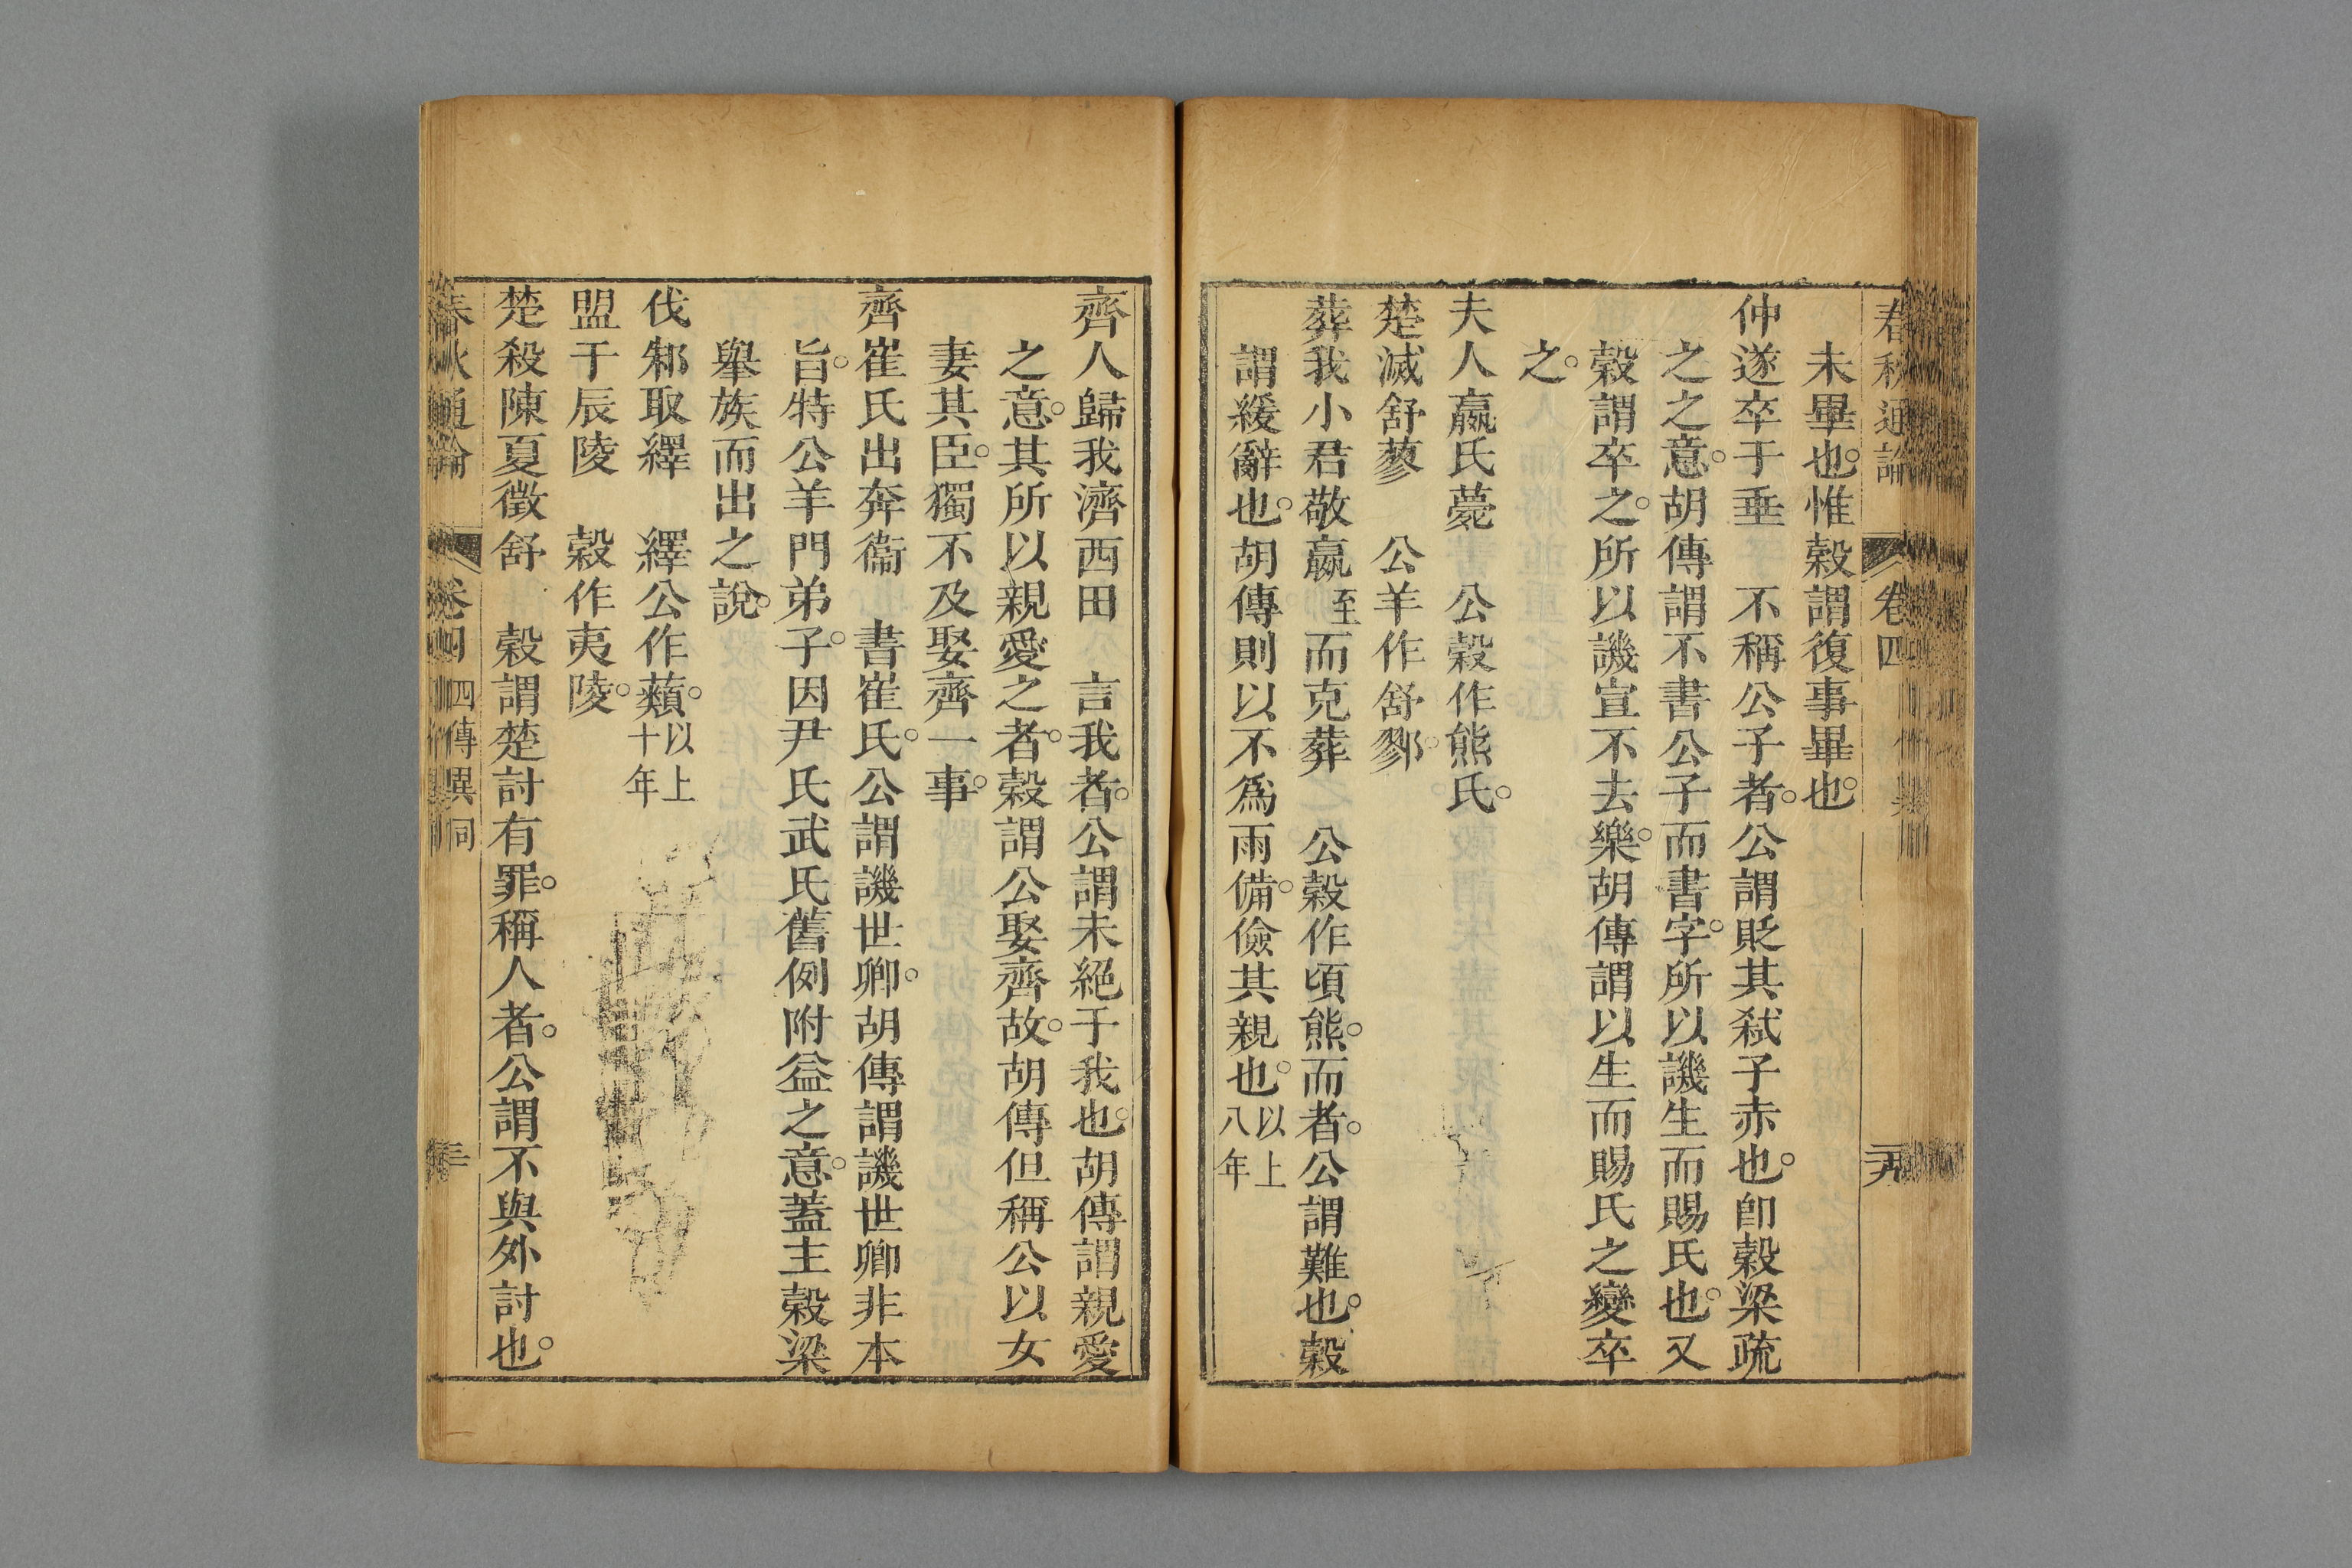 春秋通論 卷四 二十九
未畢也惟穀謂復事畢也
仲遂卒于垂 不稱公子者公謂貶其弒子赤也卽穀梁疏
之之意胡傳謂不書公子而書字所以譏生而賜氏也又
穀謂卒之所以譏宣不去樂胡傳謂以生而賜氏之變卒
之
夫人嬴氏薨 公穀作熊氏
楚滅舒蓼 公羊作舒鄝
葬我小君敬嬴至而克葬 公穀作頃熊而者公謂難也穀
謂緩辭也胡傳則以不爲雨備儉其親也以上八年
齊人歸我濟西田 言我者公謂未絕于我也胡傳謂親愛
之意其所以親愛之者穀謂公娶齊故胡傳但稱公以女
妻其臣獨不及娶齊一事
齊崔氏出奔衞 書崔氏公謂譏世卿胡傳謂譏世卿非本
旨特公羊門弟子因尹氏武氏舊例附益之意蓋主穀梁
舉族而出之說
伐邾取繹 繹公作蘱以上十年
盟于辰陵 穀作夷陵
楚殺陳夏徵舒 穀謂楚討有罪稱人者公謂不與外討也
春秋通論 卷四 四傳異同